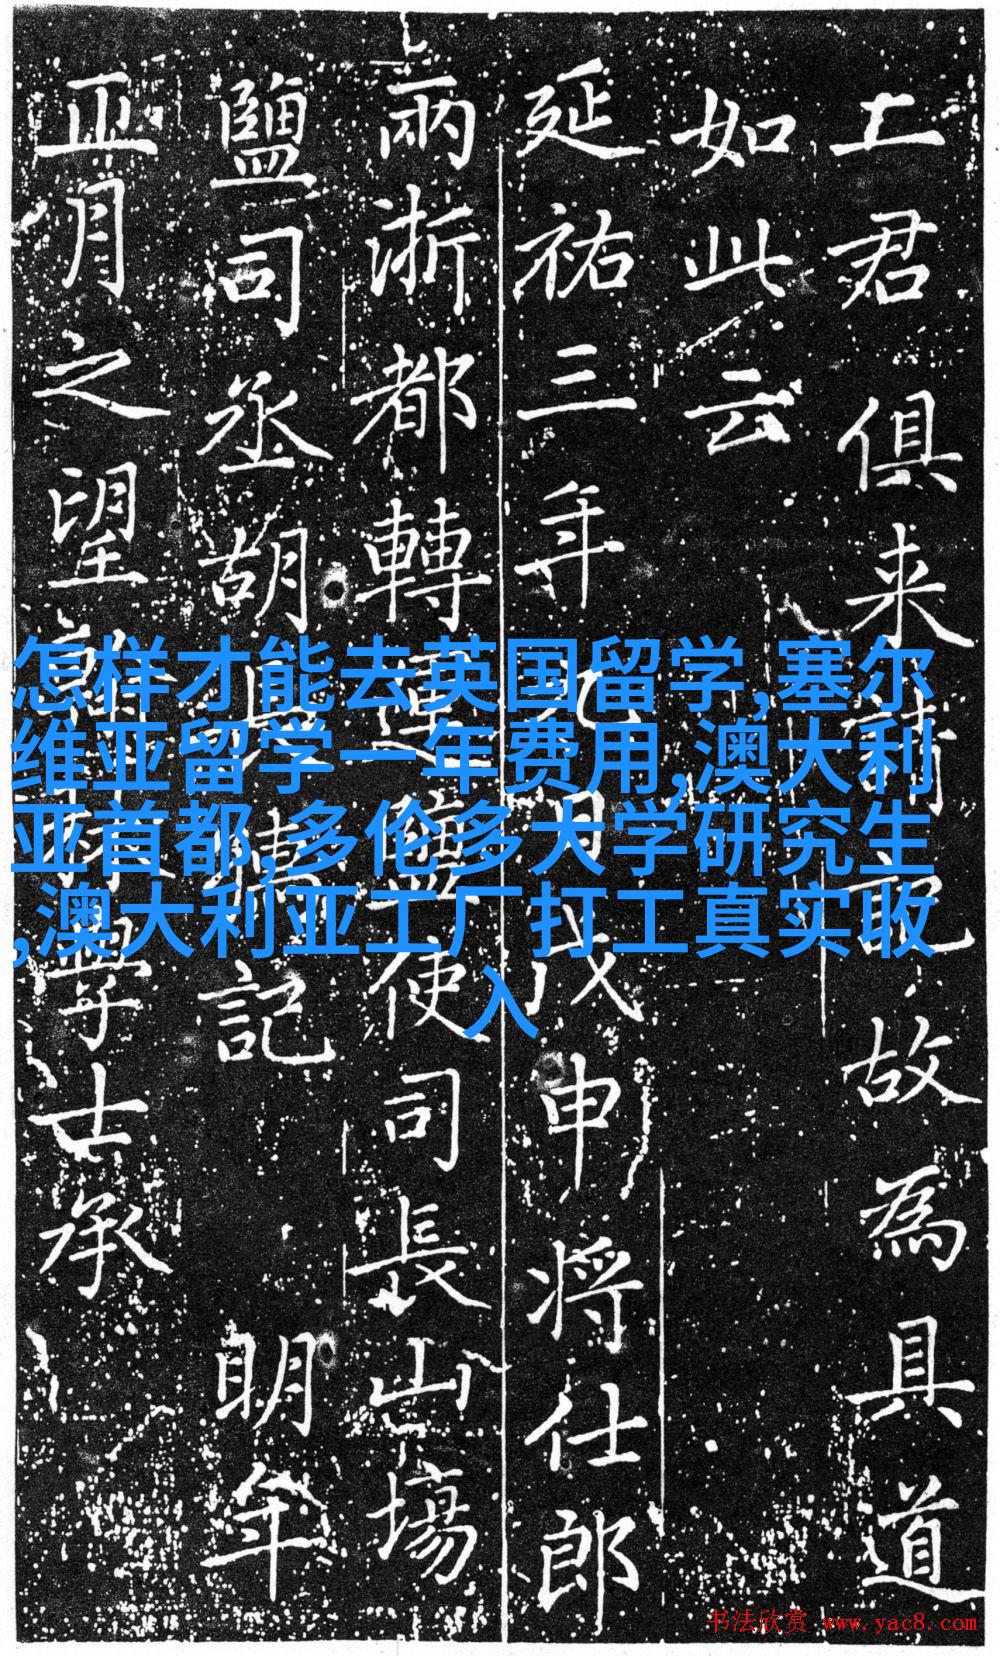 士君俱来請記故為具道
如此云
延祐三年九月戊申将仕郎
兩浙都轉運鹽使司長山場
鹽司丞胡長孺記 明年
正月之望前翰林學士承
怎样才能去英国留学,塞尔
维亚留学一年费用,澳大利
亚首都,多伦多大学研究生
,澳大利亚工厂打工真实收
入
书法欣赏 www.yac8.com